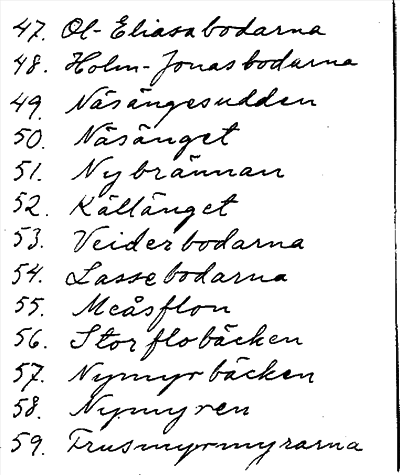 47. Ol-Eliasabodarna
48. Holm-Jonasbodarna
49. Näsängesudden
50. Näsänget
51. Nybrännan
52. Källänget
53. Veiderbodarna
54. Lassebodarna
55. Meåsflon
56. Storflobäcken
57. Nymyrbäcken
58. Nymyren
59. Trusmyrmyrarna